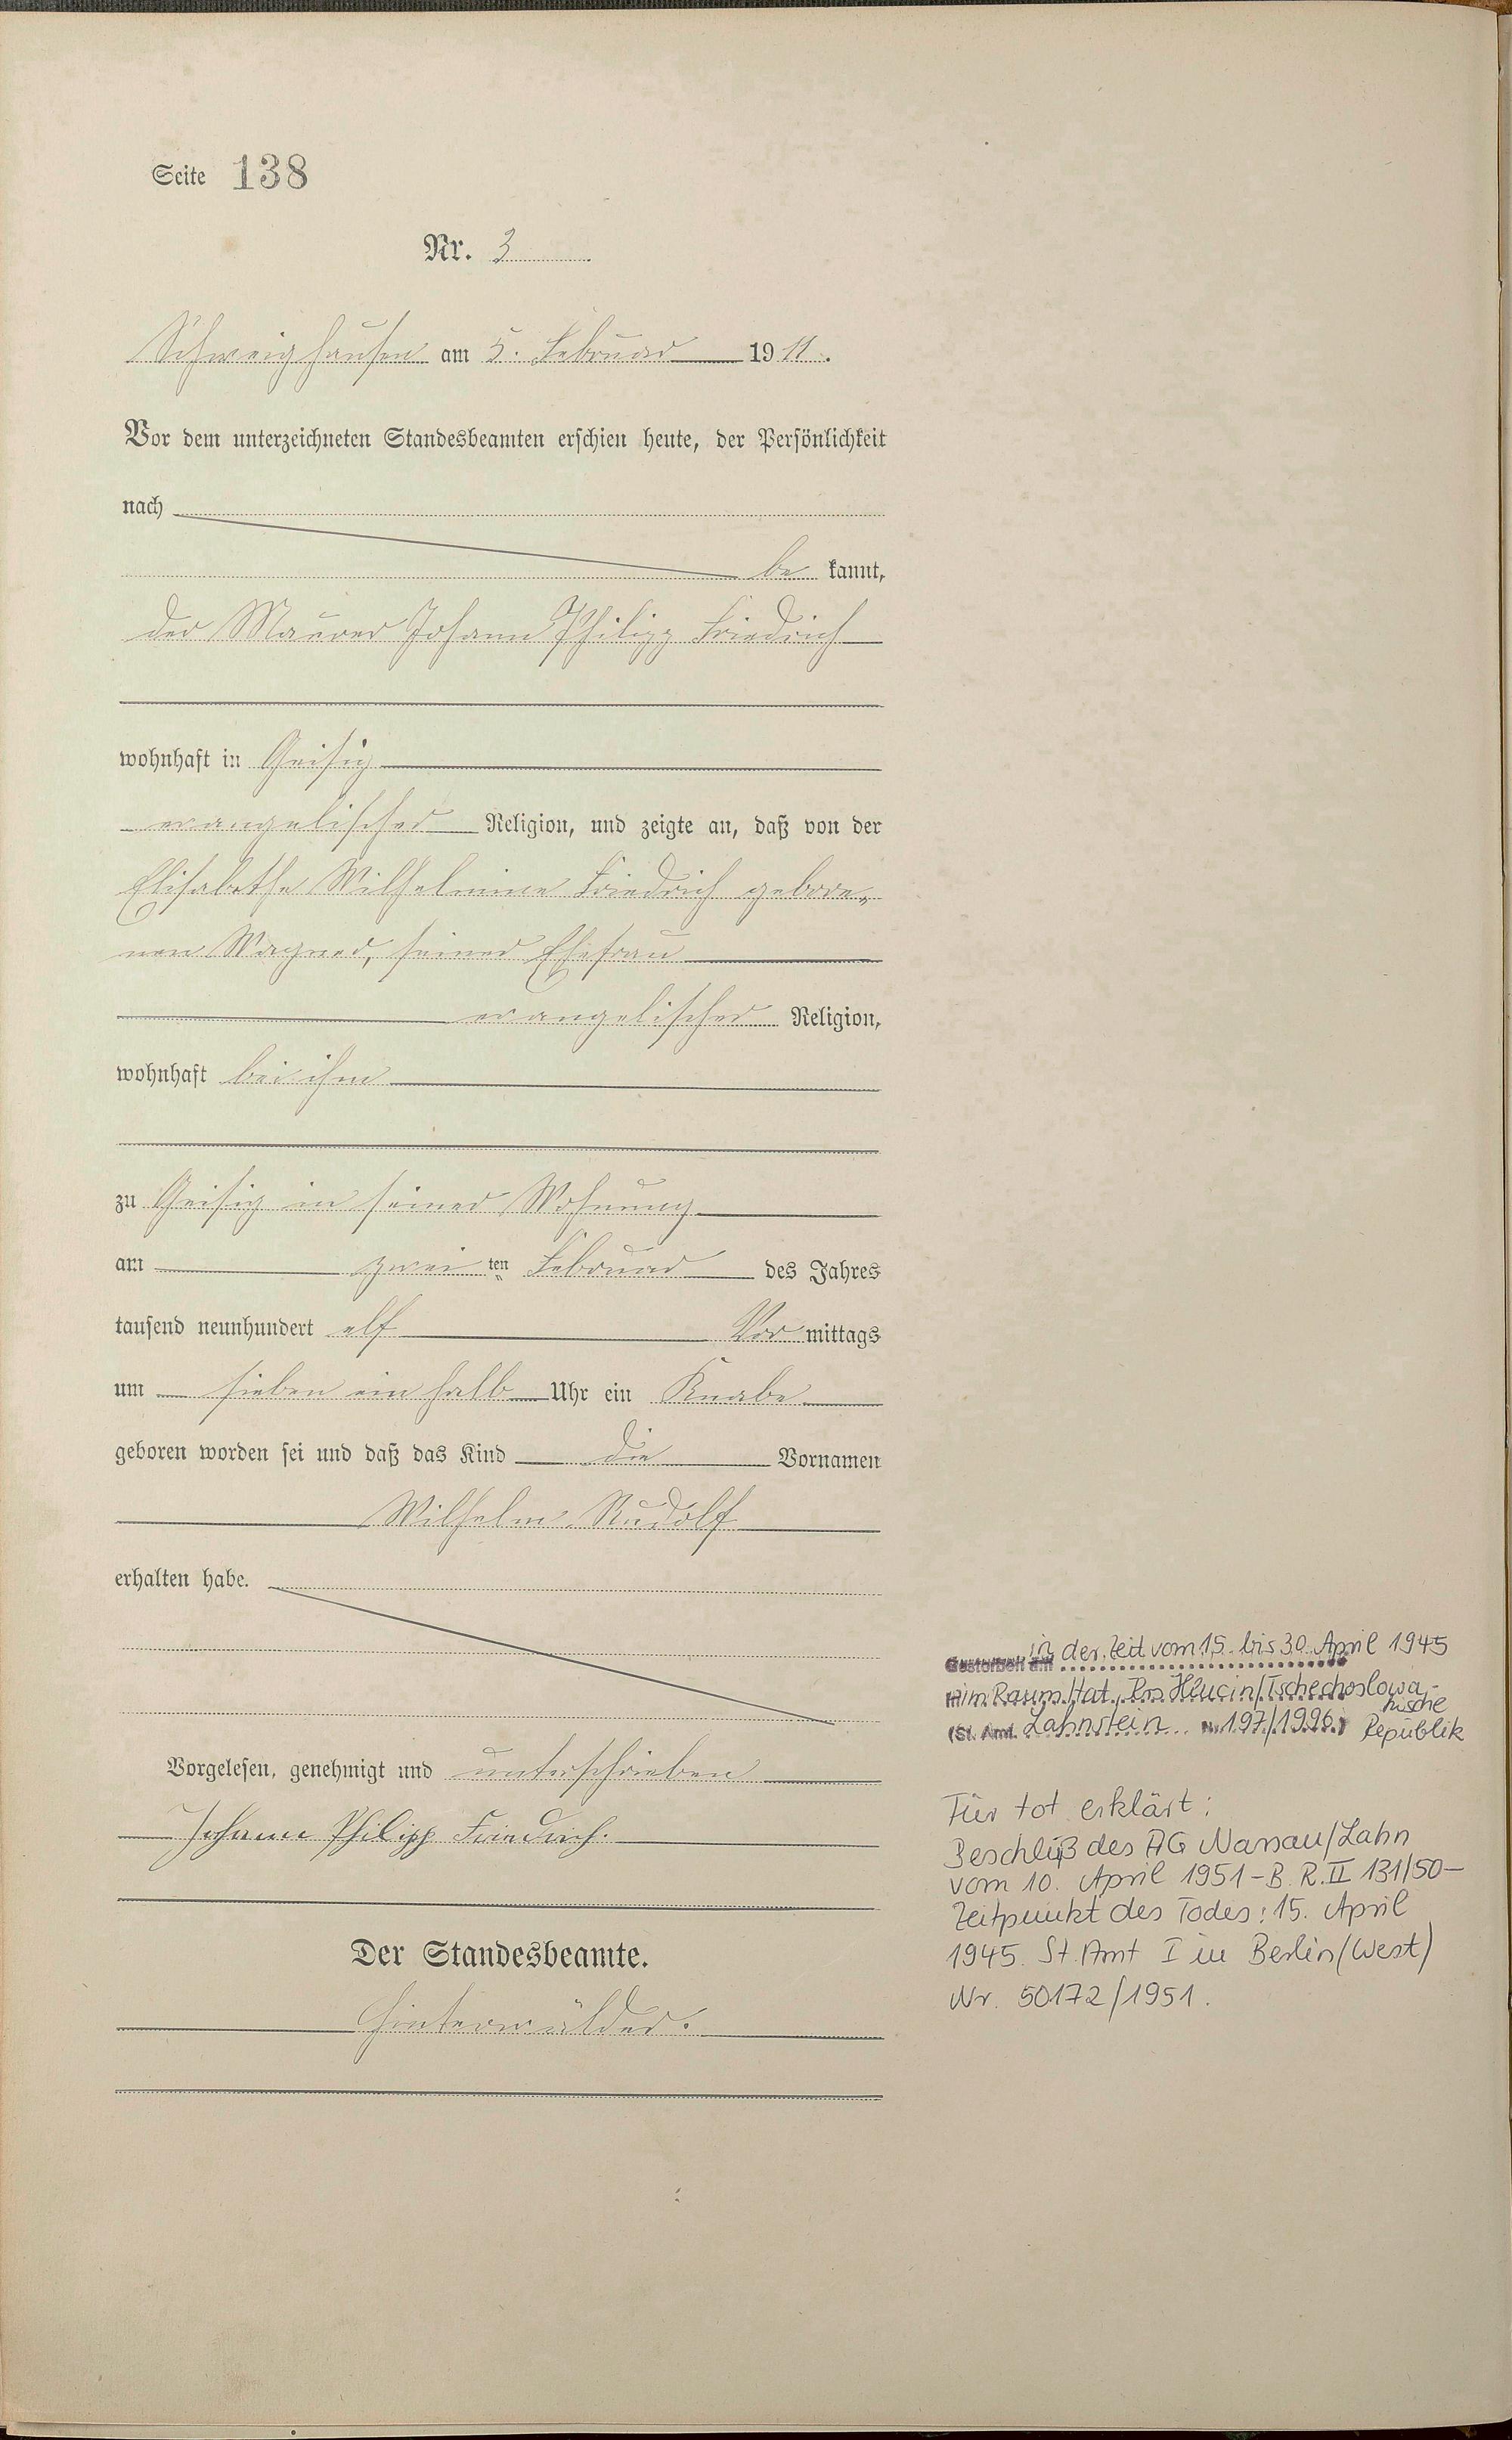 Seite 138
Nr. 3
Schweighausen am 5. Februar 1911.
Vor dem unterzeichneten Standesbeamten erschien heute, der Persönlichkeit
nach
be kannt,
der Maurer Johann Philipp Friedrich
wohnhaft in Geisig
evangelischer Religion, und zeigte an, daß von der
Elisabethe Wilhelmine Friedrich gebore-
nen Wagner, seiner Ehefrau
evangelischer Religion,
wohnhaft bei ihm
zu Geisig in seiner Wohnung
am zwei ten Februar des Jahres
tausend neunhundert elf Vor mittags
um sieben ein halb Uhr ein Knabe
geboren worden sei und daß das Kind die Vornamen
Wilhelm Rudolf
erhalten habe.
Vorgelesen, genehmigt und unterschrieben
Johann Philipp Friedrich.
Der Standesbeamte.
Hinterwälder.
Gestorben am in der Zeit vom 15. bis 30. April 1945
im Raum Hat, Hlucin/Tschechoslowa-
kische
(St. Amt. Lahnstein Nr. 197/1996) Republik
Für tot erklärt:
Beschluß des AG Nassau/Lahn
vom 10. April 1951 - B. R. II 131/50 -
Zeitpunkt des Todes: 15. April
1945. St. Amt I in Berlin (West)
Nr. 50172/1951.